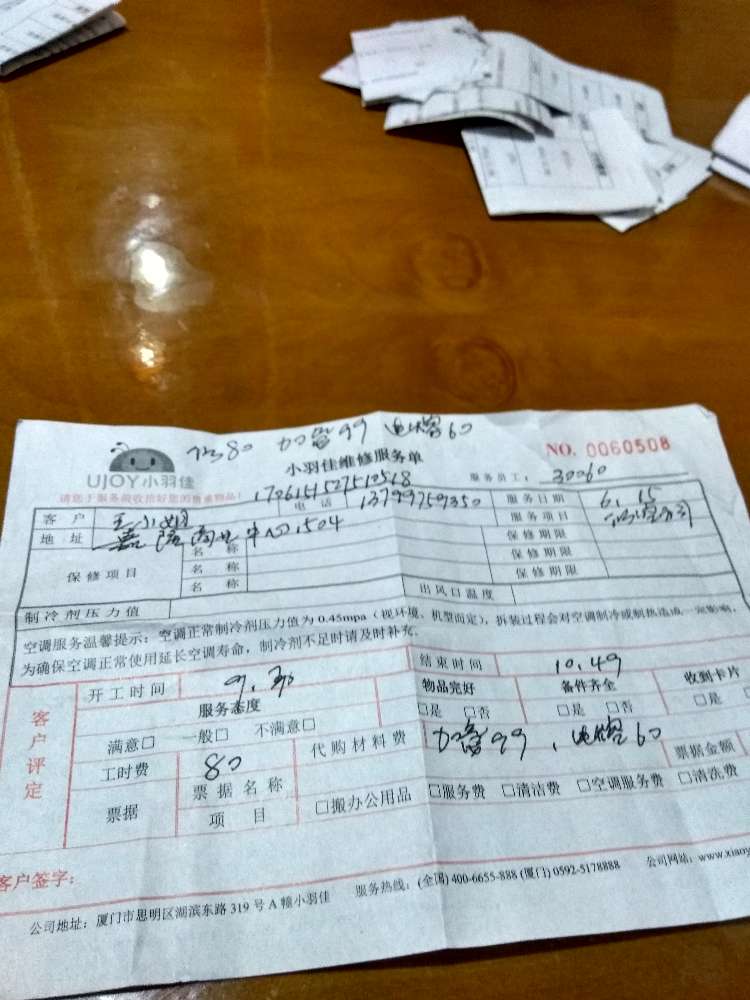 80 加 99 60
NO. 0060508
UJOY小羽佳
小羽佳维修服务单
服务员工： 30060
请您于服务前收拾好您的贵重物品！
1706151527510518
客户 王小姐 电话 13799759350 服务日期 6.15
地址 嘉 中心1504 服务项目
保修项目 名称 保修期限
名称 保修期限
名称 保修期限
制冷剂压力值 出风口温度
空调服务温馨提示：空调正常制冷剂压力值为 0.45mpa（视环境、机型而定），拆装过程会对空调制冷或制热造成一定影响，
为确保空调正常使用延长空调寿命，制冷剂不足时请及时补充。
客户评定
开工时间 9.30 结束时间 10.49
服务态度 物品完好 备件齐全 收到卡片
满意□ 一般□ 不满意□ □是 □否 □是 □否 □是
工时费 80 代购材料费 加 99， 60
票据 票据名称 票据金额
项目 □搬办公用品 □服务费 □清洁费 □空调服务费 □清洗费
客户签字：
公司地址：厦门市思明区湖滨东路 319 号 A 幢小羽佳 服务热线：(全国) 400-6655-888 (厦门) 0592-5178888 公司网站：www.xiaoy